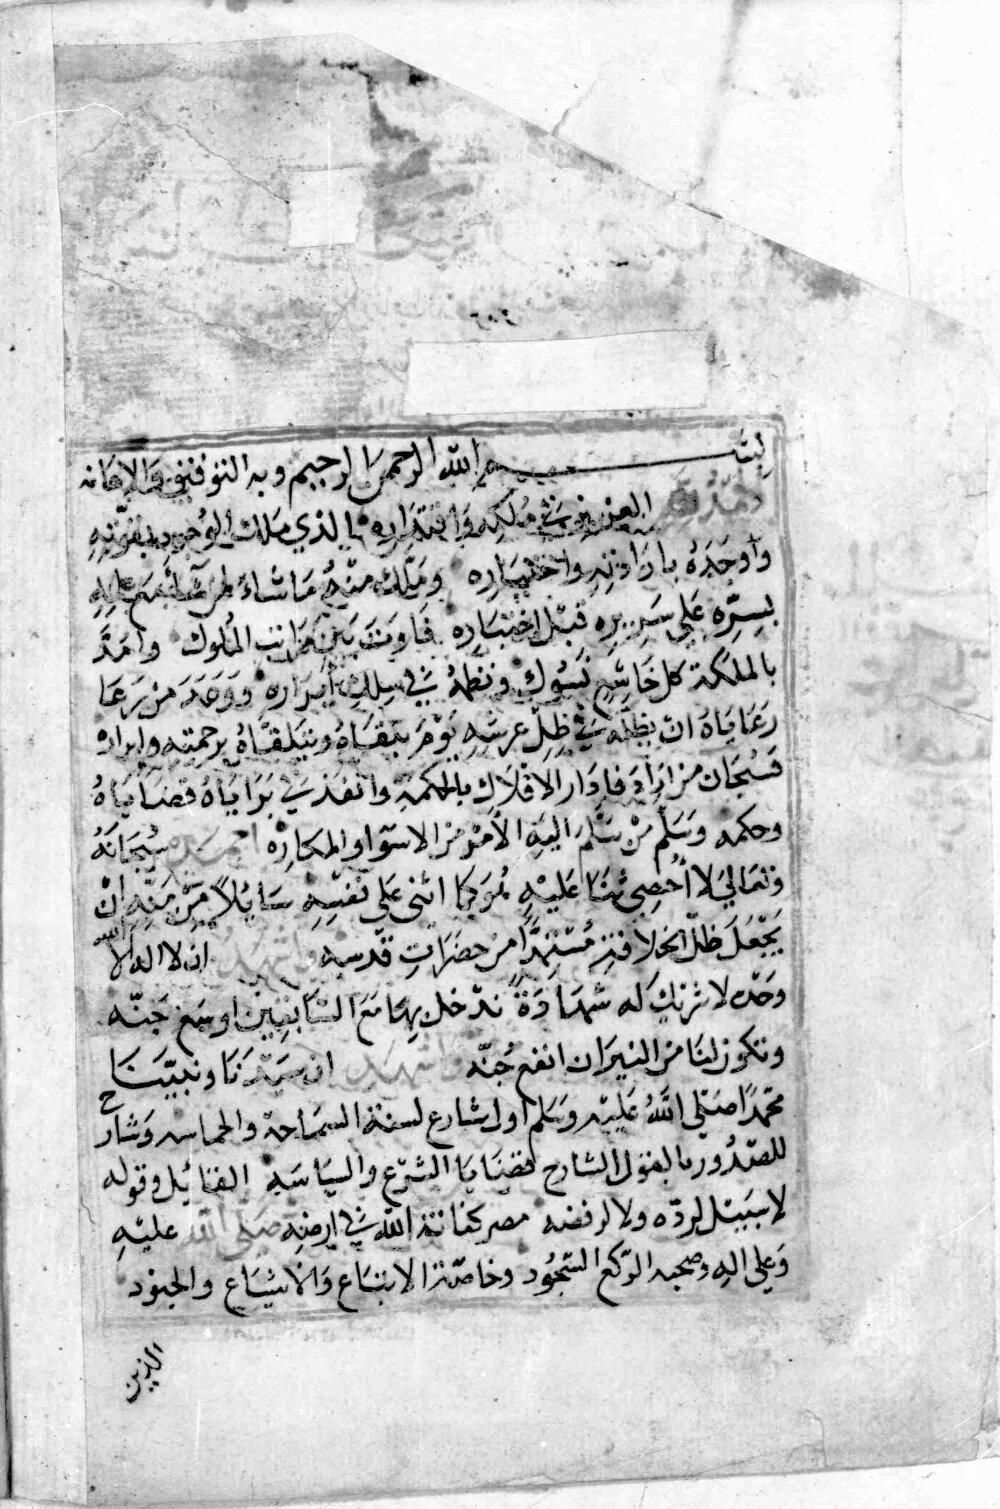 بسم الله الرحمن الرحيم وبه التوفيق والاعانه
الحمد لله العزيز في ملكه واقتداره الذي ملك الوجود بقوته
واوجده بارادته واختياره وملك منه ما شاء لمن شا
بسره علي سريره قبل اختباره فاوت بين مراتب الملوك وامد
بالمملكة كل خاشع نسوك ونظمه في سلك ابراره ووعد من رعا
رعاياه ان يظله في ظل عرشه يوم يلقاه ويتلقاه برحمته وابراره
فسبحان من اراد فادار الافلاك بالحكمة وانفذ في براياه قضاياه
وحكمه وسلم من سلم اليه الامر من الاسوا والمكاره احمده سبحانه
وتعالي لا احصي ثنا عليه هو كما اثني علي نفسه سايلا من منه ان
يجعل ظل الخلافة مستمدا من حضرات قدسه واشهد ان لا اله الا الله
وحده لا شريك له شهادة ندخل بها مع السابقين اوسع جنه
وتكون لنا من النيران انفع جنه واشهد ان سيدنا ونبينا
محمدا صلي الله عليه وسلم اول شارع لسنة السماحة والحماسه وشارح
للصدور بالقول الشارح لقضايا الشرع والسياسه القائل وقوله
لا سبيل لرده ولا لرفضه مصر كنانة الله في ارضه صلي الله عليه
وعلي اله وصحبه الركع السجود وخاصة الاتباع والاشياع والجنود
الذين